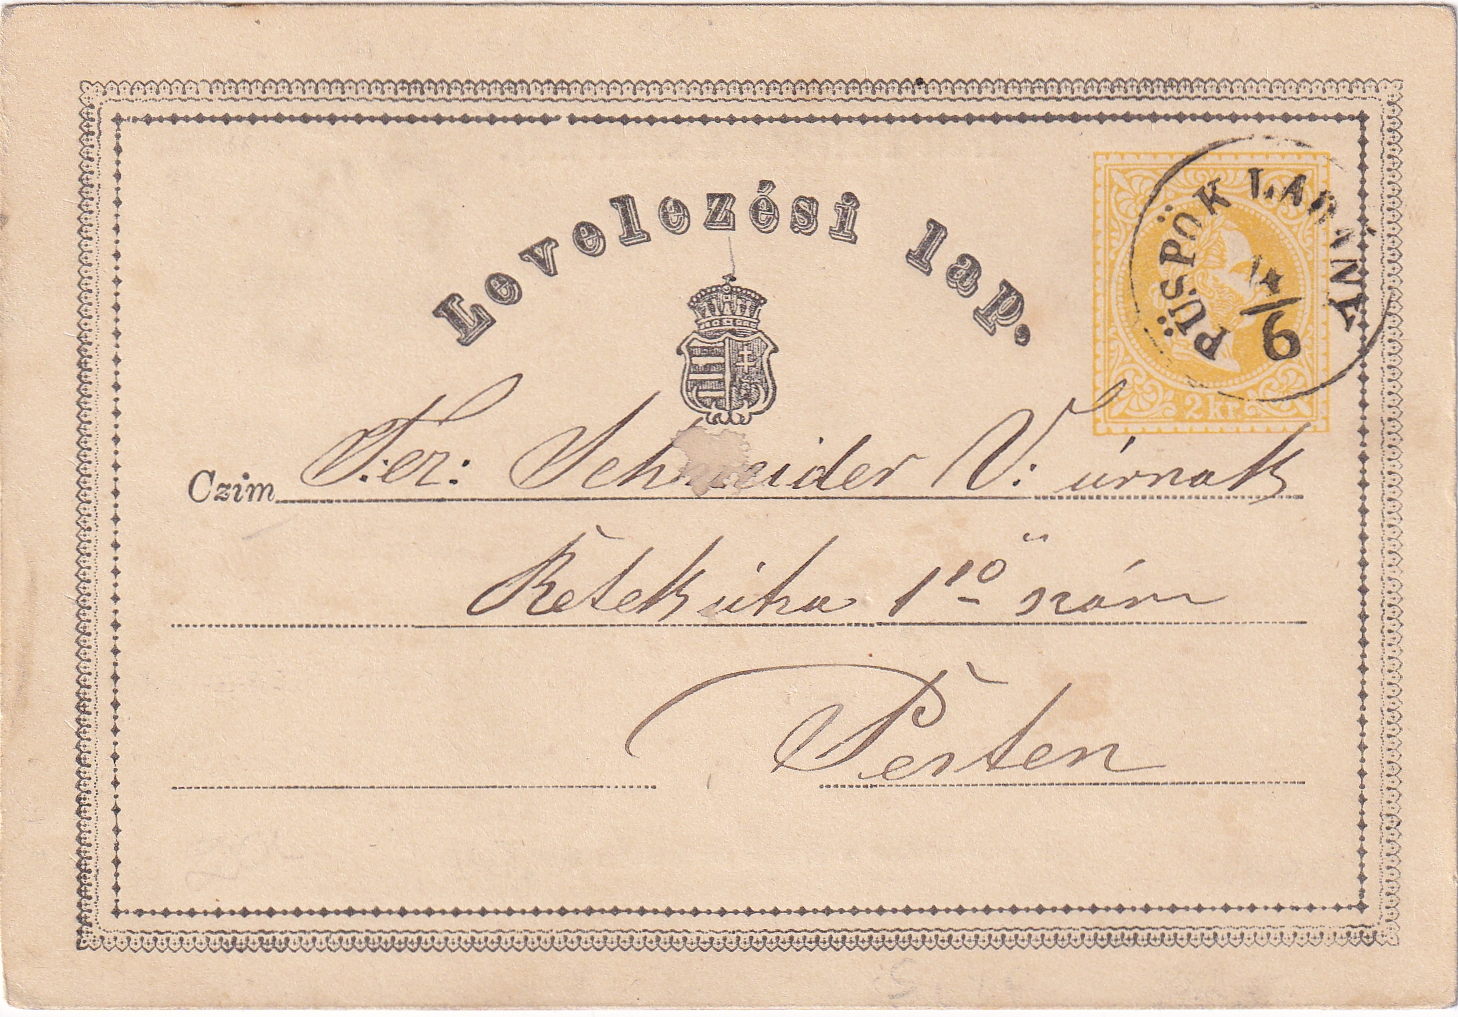 Levelezési lap.
PÜSPÖK LADÁNY
14/6
2 kr.
Czim T.cz: Schneider V: úrnak
Kétek útza 1ső szám
Pesten